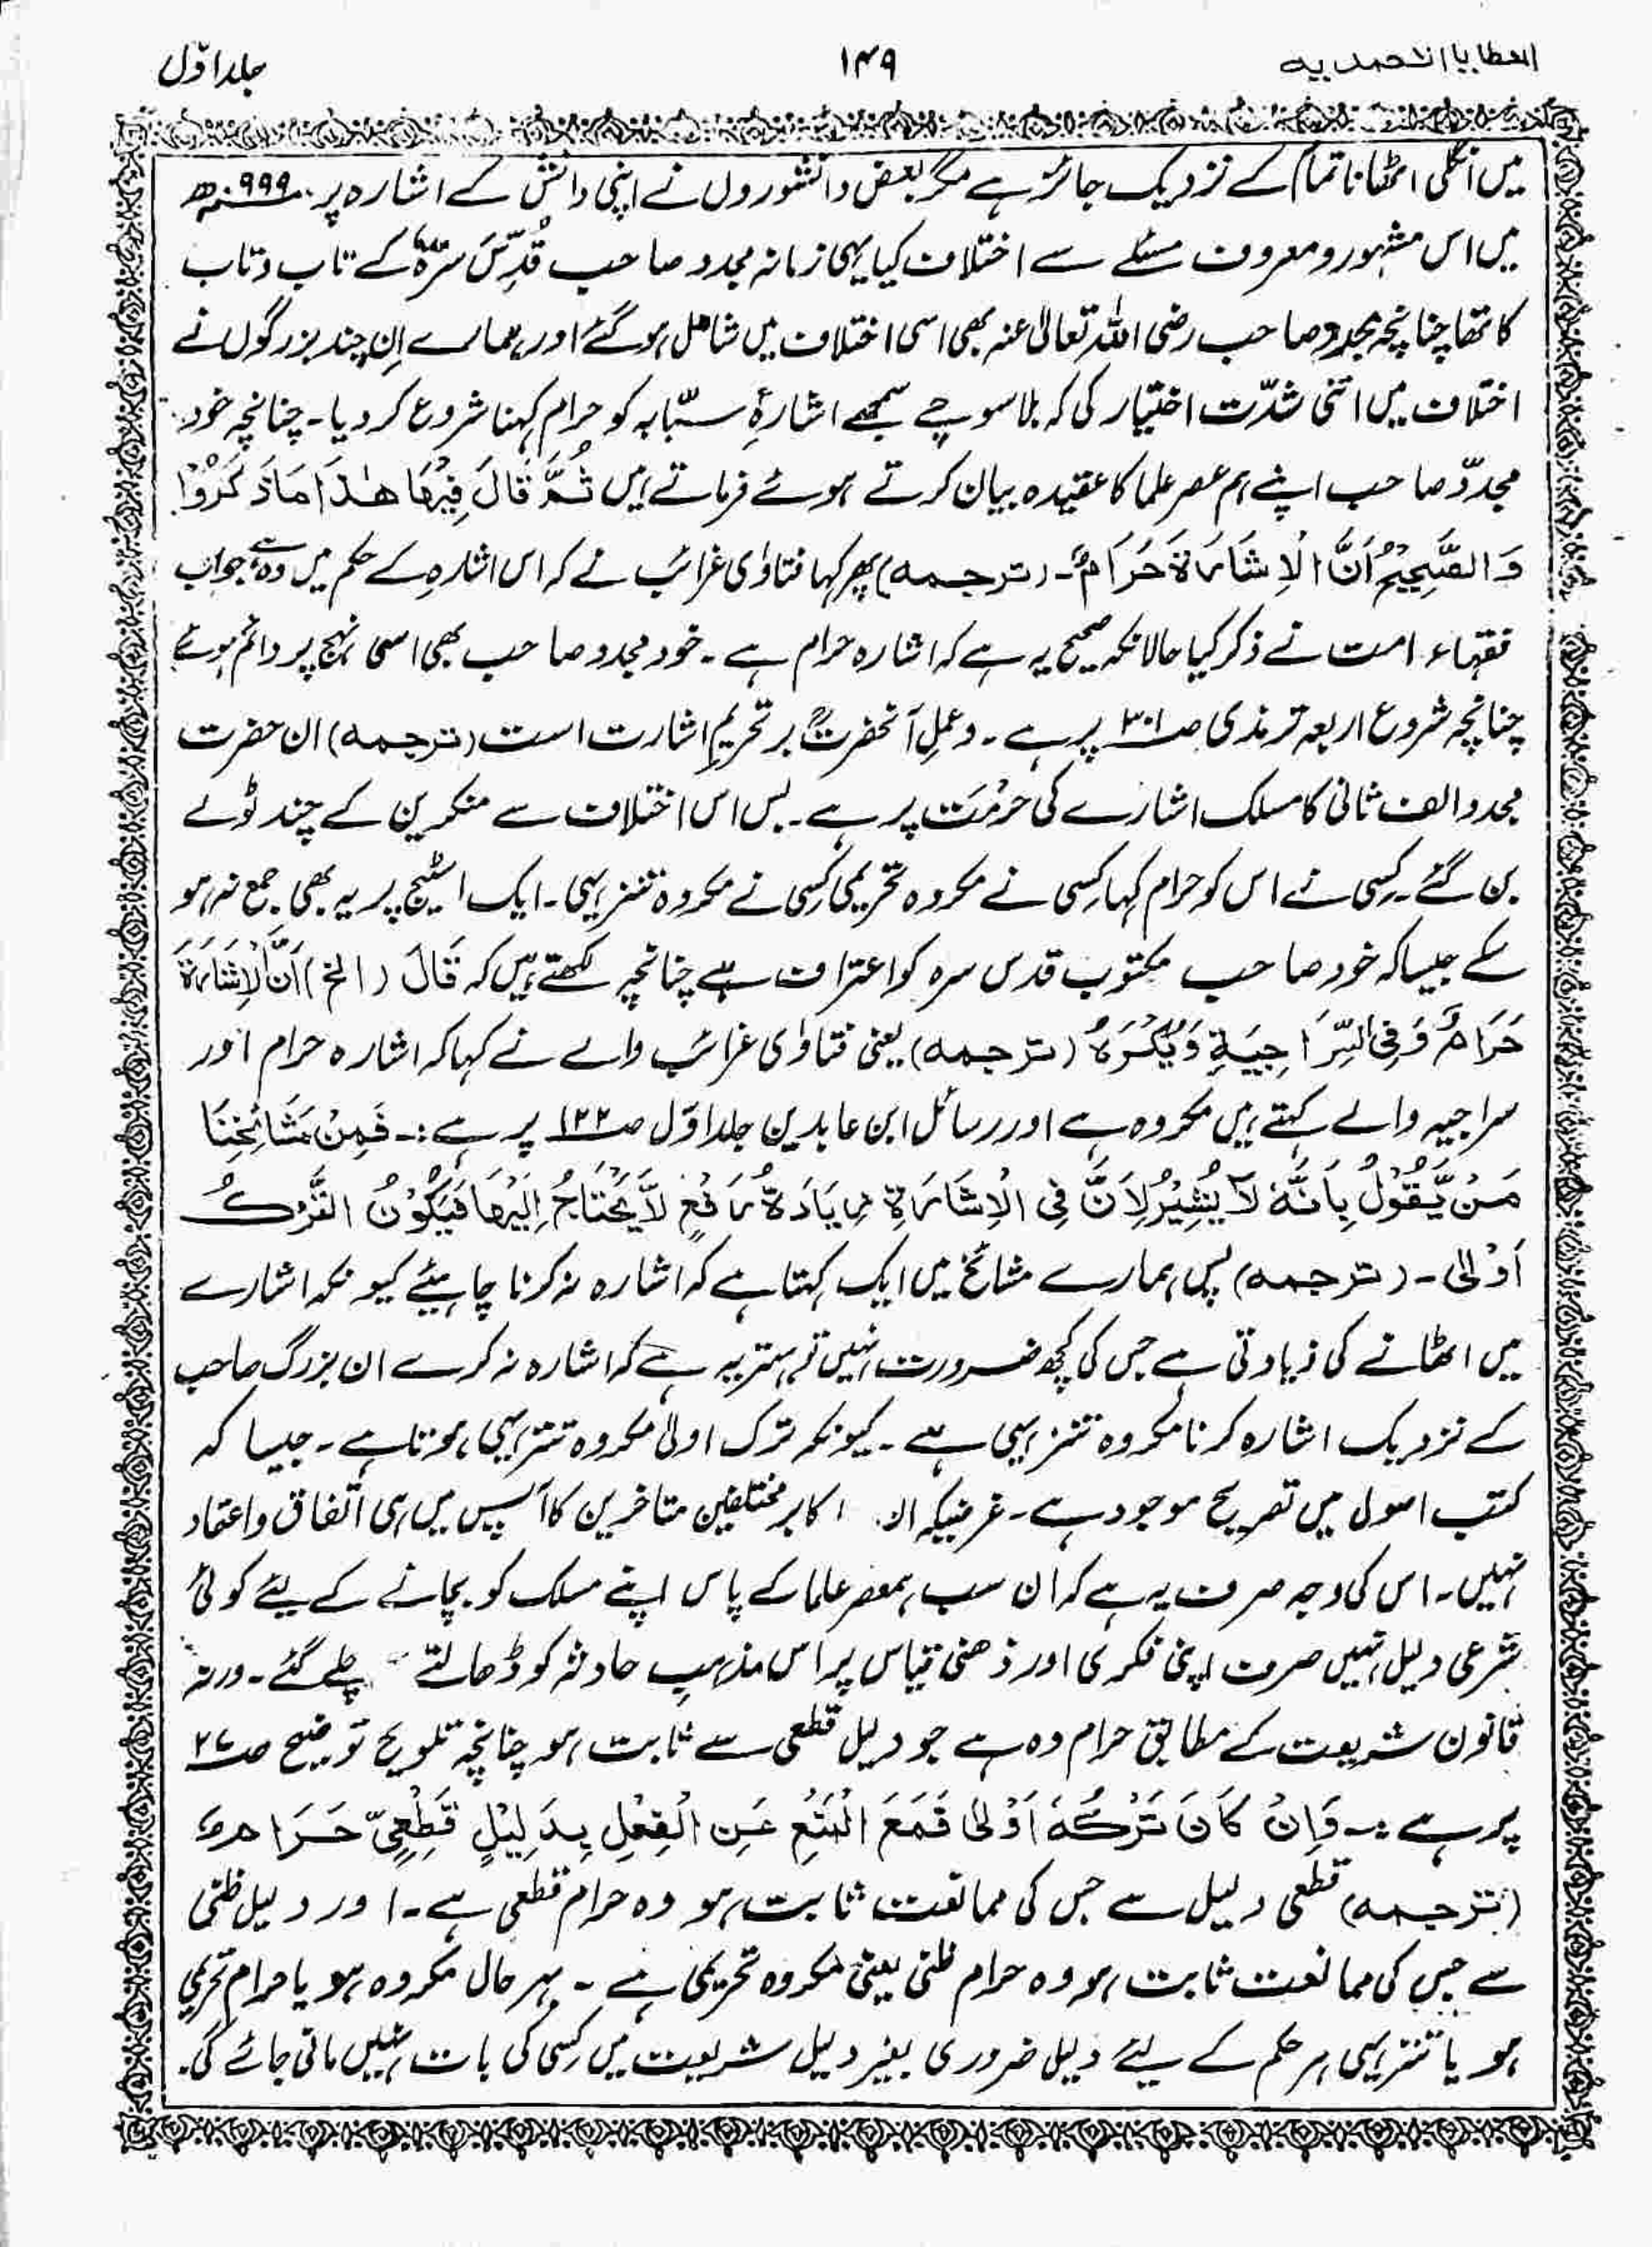 العطایا الاحمدیہ
۱۴۹
جلد اوّل
میں انگلی اٹھانا تمام کے نزدیک جائز ہے مگر بعض دانشوروں نے اپنی دانش کے اشارہ پر ۹۹۹ھ
میں اس مشہور و معروف مسئلے سے اختلاف کیا یہی زمانہ مجدد صاحب قُدِّسَ سرّہٗ کے تاب و تاب
کا تھا چنانچہ مجدد صاحب رضی اللہ تعالیٰ عنہ بھی اسی اختلاف میں شامل ہو گئے اور ہمارے اِن چند بزرگوں نے
اختلاف میں اتنی شدّت اختیار کی کہ بلا سوچے سمجھے اشارۂ سبّابہ کو حرام کہنا شروع کر دیا۔ چنانچہ خود
مجددّ صاحب اپنے ہم عصر علما کا عقیدہ بیان کرتے ہوئے فرماتے ہیں ثُمَّ قَالَ فِیْھَا ھٰذَا مَا ذَکَرُوْا
وَالصَّحِیْحُ اَنَّ الْاِشَارَۃَ حَرَامٌ۔ (ترجمہ) پھر کہا فتاوٰی غرائب نے کہ اس اشارہ کے حکم میں وہ ہے جو اب
فقہاء امت نے ذکر کیا حالانکہ صحیح یہ ہے کہ اشارہ حرام ہے۔ خود مجدد صاحب بھی اسی نہج پر دائم ہوئے
چنانچہ شروع اربعہ ترمذی صـ۳۰۱ پر ہے۔ وعملِ آنحضرتؒ بر تحریمِ اشارت است (ترجمہ) ان حضرت
مجدد الف ثانی کا مسلک اشارے کی حرمَت پر ہے۔ بس اس اختلاف سے منکرین کے چند ٹولے
بن گئے۔ کِسی نے اس کو حرام کہا کِسی نے مکروہ تحریمی کِسی نے مکروہ تنزیہی۔ ایک اسٹیج پر یہ بھی جمع نہ ہو
سکے جیسا کہ خود صاحب مکتوب قدس سرہ کو اعتراف ہے چنانچہ لکھتے ہیں کہ قَالَ (الخ) اَنَّ الْاِشَارَۃَ
حَرَامٌ وَفِی السِّرَاجِیَۃِ وَیُکْرَہُ (ترجمہ) یعنی فتاوٰی غرائب والے نے کہا کہ اشارہ حرام اور
سراجیہ والے کہتے ہیں مکروہ ہے اور رسائل ابن عابدین جلد اوّل صـ۱۲۲ پر ہے:۔ فَمِنْ مَشَائِخِنَا
مَنْ یَّقُوْلُ بِاَنَّہٗ لَا یُشِیْرُ لِاَنَّ فِی الْاِشَارَۃِ زِیَادَۃُ رَفْعٍ لَّا یَحْتَاجُ اِلَیْھَا فَیَکُوْنُ التَّرْکُ
اَوْلٰی۔ (ترجمہ) پس ہمارے مشائخ میں ایک کہتا ہے کہ اشارہ نہ کرنا چاہیئے کیونکہ اشارے
میں اٹھانے کی زیادتی ہے جس کی کچھ ضرورت نہیں تو بہتر یہ ہے کہ اشارہ نہ کرے ان بزرگ صاحب
کے نزدیک اشارہ کرنا مکروہ تنزیہی ہے۔ کیونکہ ترک اولیٰ مکروہ تنزیہی ہوتا ہے۔ جیسا کہ
کتب اصول میں تصریح موجود ہے۔ غرضیکہ اکابر مختلفین متاخرین کا آپس میں ہی اتفاق و اعتماد
نہیں۔ اس کی وجہ صرف یہ ہے کہ ان سب ہمعصر علما کے پاس اپنے مسلک کو بچانے کے لیئے کوئی
شرعی دلیل نہیں صرف اپنی فکری اور ذھنی قیاس پر اس مذہبِ حادثہ کو ڈھالتے چلے گئے۔ ورنہ
قانون شریعت کے مطابق حرام وہ ہے جو دلیل قطعی سے ثابت ہو چنانچہ تلویح توضیح صـ۲۷
پر ہے:۔ فَاِنْ کَانَ تَرْکُہٗ اَوْلٰی فَمَعَ الْمَنْعِ عَنِ الْفِعْلِ بِدَلِیْلٍ قَطْعِیٍّ حَرَامٌ
(ترجمہ) قطعی دلیل سے جس کی ممانعت ثابت ہو وہ حرام قطعی ہے۔ اور دلیل ظنی
سے جس کی ممانعت ثابت ہو وہ حرام ظنی یعنی مکروہ تحریمی ہے۔ بہر حال مکروہ ہو یا حرام تحریمی
ہو یا تنزیہی ہر حکم کے لیئے دلیل ضروری بغیر دلیل شریعت میں کِسی کی بات نہیں مانی جائے گی۔